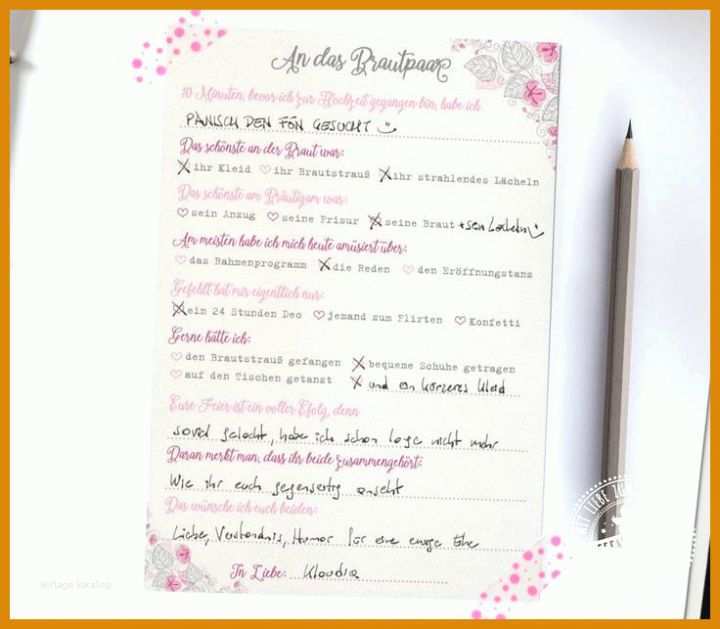 An das Brautpaar
10 Minuten, bevor ich zur Hochzeit gegangen bin, habe ich
PANISCH DEN FÖN GESUCHT
Das schönste an der Braut war:
ihr Kleid ihr Brautstrauß ihr strahlendes Lächeln
Das schönste am Bräutigam war:
sein Anzug seine Frisur seine Braut + sein Lächeln
Am meisten habe ich mich heute amüsiert über:
das Rahmenprogramm die Reden den Eröffnungstanz
Gefehlt hat mir eigentlich nur:
ein 24 Stunden Deo jemand zum Flirten Konfetti
Gerne hätte ich:
den Brautstrauß gefangen bequeme Schuhe getragen
auf den Tischen getanzt und ein kürzeres Kleid
Eure Feier ist ein voller Efolg, denn
soviel gelacht, habe ich schon lage nicht mehr
Daran merkt man, dass ihr beide zusammengehört:
Wie ihr euch gegenseitig anseht
Das wünsche ich euch beiden:
Liebe, Verständnis, Humor für eine ewige Ehe
In Liebe: Klaudia
vorlage katalog
LIEBE